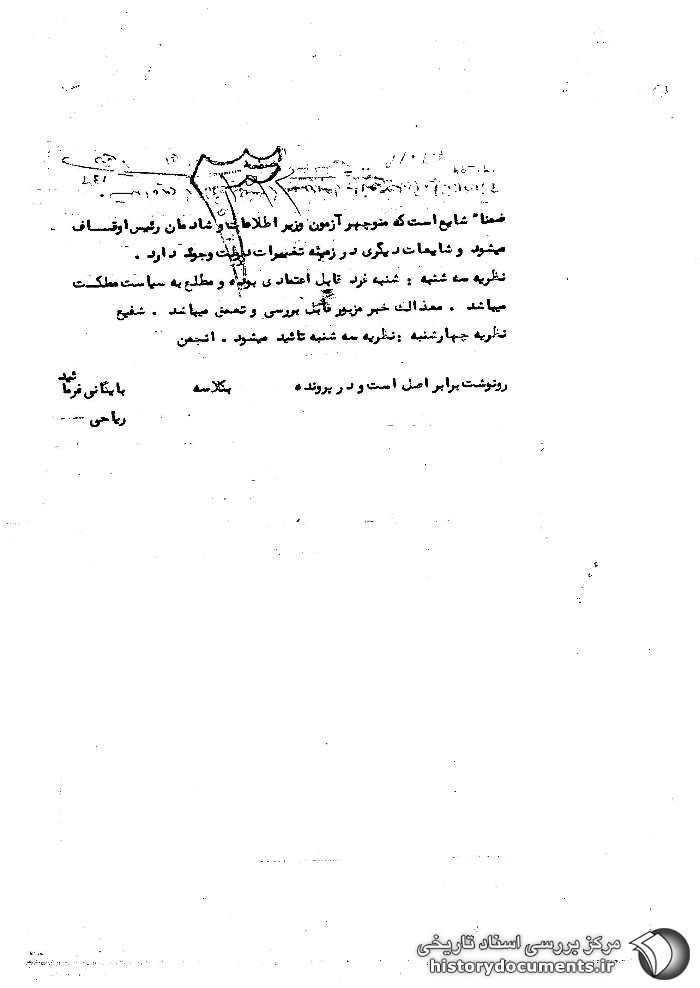 ضمناً شایع است که منوچهر آزمون وزیر اطلاعات و شادمان رئیس اوقاف
میشود و شایعات دیگری در زمینه تغییرات دولت وجود دارد .
نظریه سه شنبه : شنبه فرد قابل اعتمادی بوده و مطلع به سیاست مملکت
میباشد . معذالک خبر مزبور قابل بررسی و تعمق میباشد . شفیع
نظریه چهارشنبه : نظریه سه شنبه تائید میشود . انجمن
رونوشت برابر اصل است و در پرونده بکلاسه بایگانی فرمائید
ریاحی
مرکز بررسی اسناد تاریخی
historydocuments.ir